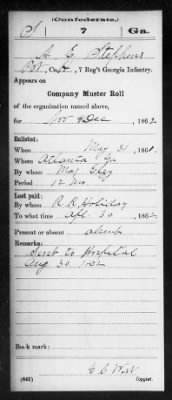 (Confederate.)
S 7 Ga.
A. E. Stephens
Co. K, 7 Reg't Georgia Infantry.
Appears on
Company Muster Roll
of the organization named above,
for Nov & Dec, 1862
Enlisted:
When May 31, 1861
Where Atlanta Ga
By whom Maj
Period 12 mo.
Last paid:
By whom R. A. Holliday
To what time Apl. 30, 1862
Present or absent absent
Remarks:
Sent to Hospital
Aug 30 1862
Book mark:
(642) Copyist.